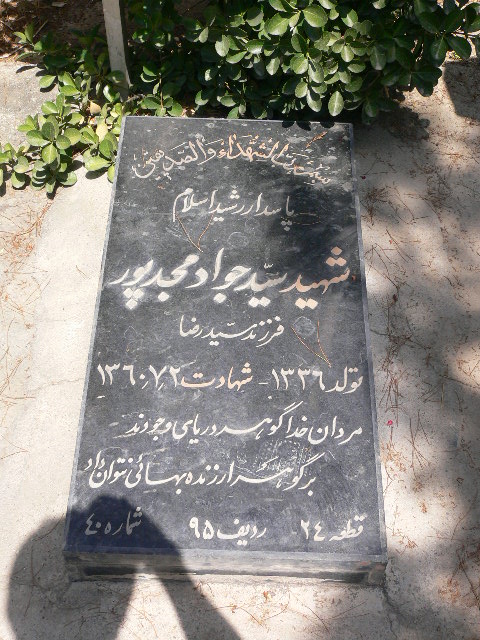 بسم رب الشهداء و الصدیقین
پاسدار رشید اسلام
شهید سیّد جواد مجدپور
فرزند سیّد رضا
تولد ۱۳۳۶ - شهادت ۱۳۶۰،۷،۲
مردان خدا گوهر دریای وجودند
بر گوهر ارزنده بهائی نتوان داد
قطعه ۲۴ ردیف ۹۵ شماره ۴۰